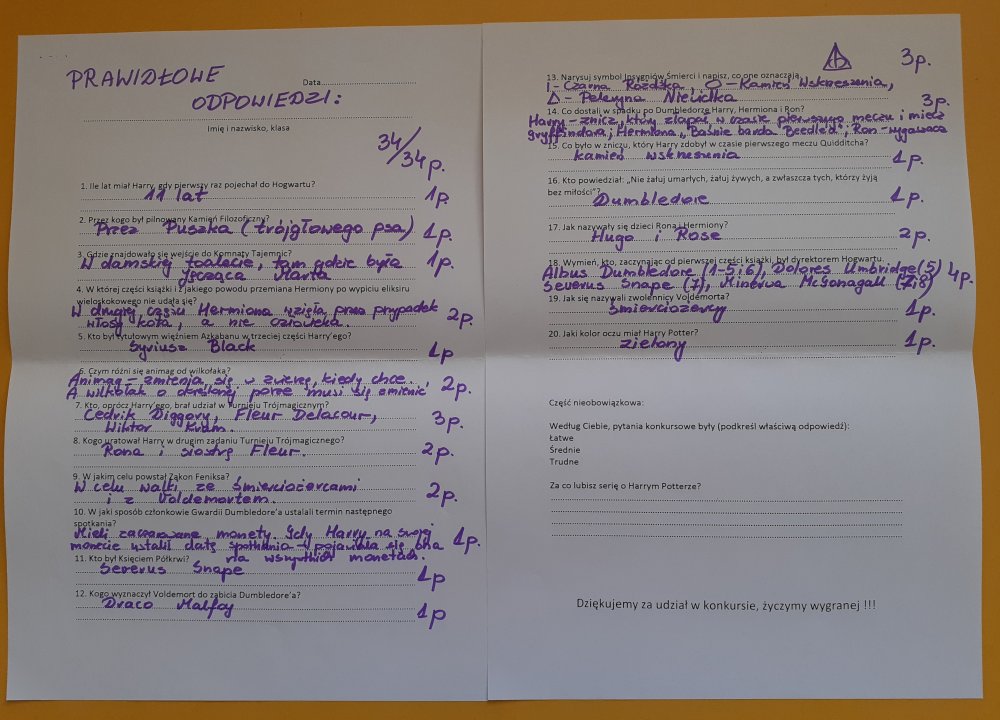 PRAWIDŁOWE
Data
ODPOWIEDZI:
Imię i nazwisko, klasa
34/34p.
1. Ile lat miał Harry, gdy pierwszy raz pojechał do Hogwartu?
11 lat 1p.
2. Przez kogo był pilnowany Kamień Filozoficzny?
Przez Puszka (trójgłowego psa) 1p.
3. Gdzie znajdowało się wejście do Komnaty Tajemnic?
W damskiej toalecie, tam gdzie była 1p.
Jęcząca Marta
4. W której części książki i z jakiego powodu przemiana Hermiony po wypiciu eliksiru
wielosokowego nie udała się?
W drugiej części Hermiona wzięła przez przypadek
włosy kota, a nie człowieka. 2p.
5. Kto był tytułowym więźniem Azkabanu w trzeciej części Harry'ego?
Syriusz Black 1p
6. Czym różni się animag od wilkołaka?
Animag - zmienia się w zwierzę, kiedy chce.
A wilkołak o określonej porze musi się zmienić. 2p.
7. Kto, oprócz Harry'ego, brał udział w Turnieju Trójmagicznym?
Cedrik Diggory, Fleur Delacour,
Wiktor Krum. 3p.
8. Kogo uratował Harry w drugim zadaniu Turnieju Trójmagicznego?
Rona i siostrę Fleur. 2p.
9. W jakim celu powstał Zakon Feniksa?
W celu walki ze śmierciożercami
i z Voldemortem. 2p.
10. W jaki sposób członkowie Gwardii Dumbledore'a ustalali termin następnego
spotkania?
Mieli zaczarowane monety. Gdy Harry na swojej
monecie ustalił datę spotkania - pojawiała się ona 1p.
na wszystkich monetach.
11. Kto był Księciem Półkrwi?
Severus Snape 1p
12. Kogo wyznaczył Voldemort do zabicia Dumbledore'a?
Draco Malfoy 1p
3p.
13. Narysuj symbol Insygniów Śmierci i napisz, co one oznaczają.
| - Czarna Różdżka, O - Kamień Wskrzeszenia,
△ - Peleryna Niewidka
14. Co dostali w spadku po Dumbledorze Harry, Hermiona i Ron? 3p.
Harry - znicz, który złapał w czasie pierwszego meczu i miecz
Gryffindora; Hermiona „Baśnie barda Beedle'a"; Ron - wygaszacz
15. Co było w zniczu, który Harry zdobył w czasie pierwszego meczu Quidditcha?
kamień wskrzeszenia 1p.
16. Kto powiedział: „Nie żałuj umarłych, żałuj żywych, a zwłaszcza tych, którzy żyją
bez miłości"?
Dumbledore 1p.
17. Jak nazywały się dzieci Rona i Hermiony?
Hugo i Rose 2p.
18. Wymień, kto, zaczynając od pierwszej części książki, był dyrektorem Hogwartu.
Albus Dumbledore (1-5 i 6), Dolores Umbridge (5) 4p.
Severus Snape (7), Minerwa McGonagall (7,8)
19. Jak się nazywali zwolennicy Voldemorta?
śmierciożercy 1p.
20. Jaki kolor oczu miał Harry Potter?
zielony 1p.
Część nieobowiązkowa:
Według Ciebie, pytania konkursowe były (podkreśl właściwą odpowiedź):
Łatwe
Średnie
Trudne
Za co lubisz serię o Harrym Potterze?
Dziękujemy za udział w konkursie, życzymy wygranej !!!